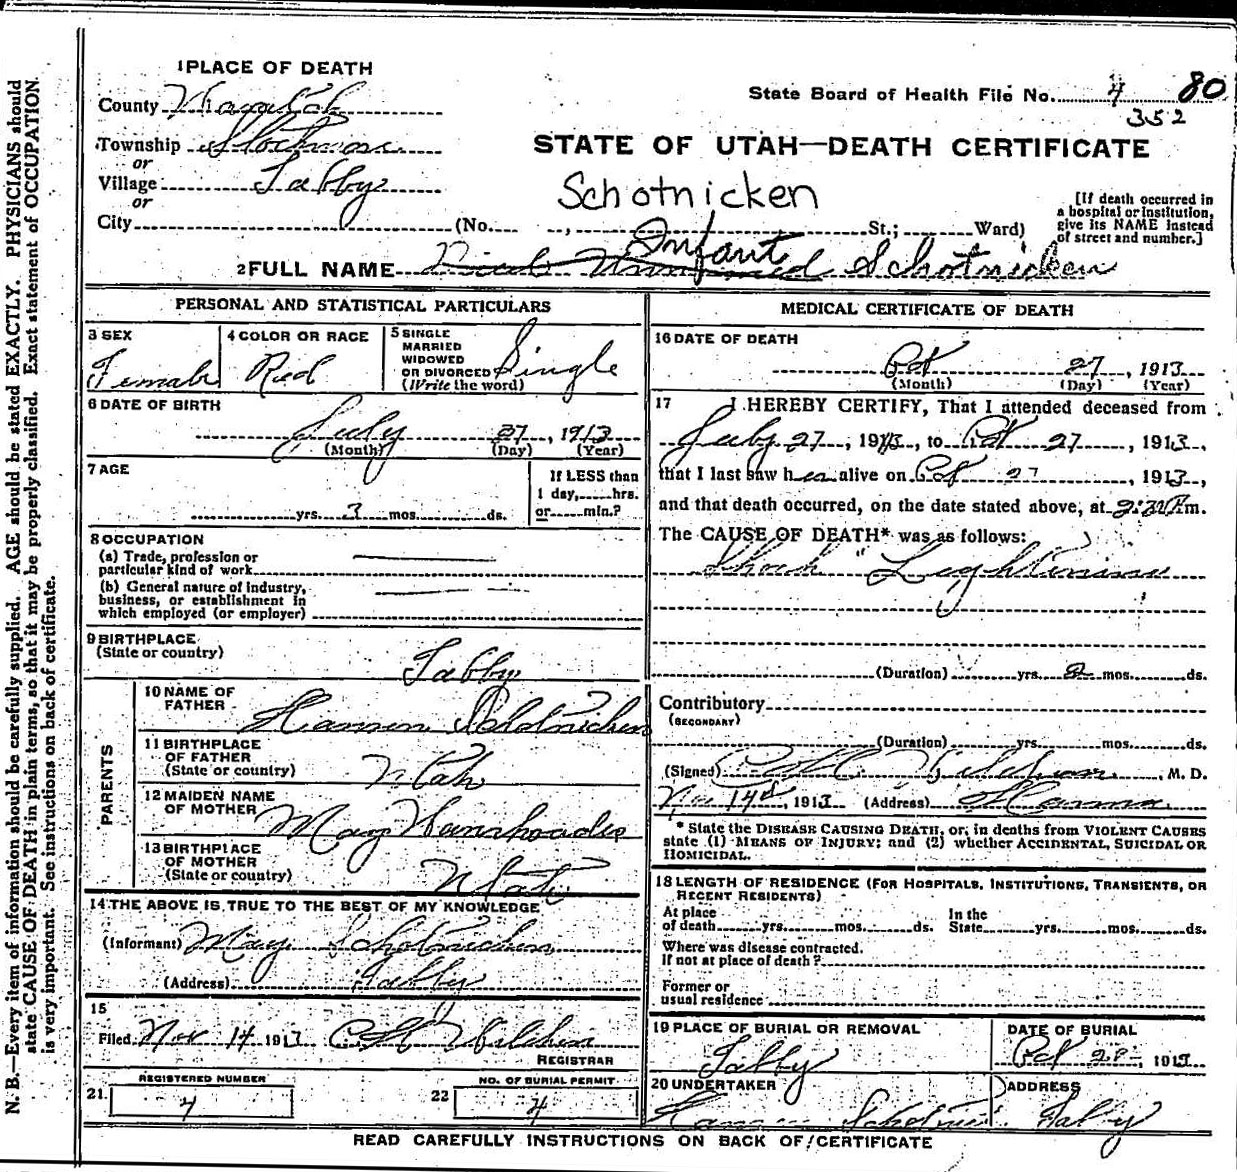 N. B.—Every item of information should be carefully supplied. AGE should be stated EXACTLY. PHYSICIANS should
state CAUSE OF DEATH in plain terms, so that it may be properly classified. Exact statement of OCCUPATION
is very important. See instructions on back of certificate.
1 PLACE OF DEATH
County
Township
or
Village Tabby
or
City (No. , St.; Ward)
State Board of Health File No. 4 80
352
STATE OF UTAH—DEATH CERTIFICATE
Schotnicken
[If death occurred in
a hospital or institution,
give its NAME instead
of street and number.]
Infant
2 FULL NAME Schotnicken
PERSONAL AND STATISTICAL PARTICULARS
3 SEX Female
4 COLOR OR RACE Red
5 SINGLE
MARRIED
WIDOWED
OR DIVORCED
(Write the word) Single
6 DATE OF BIRTH
July 27, 1913
(Month) (Day) (Year)
7 AGE
yrs. 3 mos. ds.
If LESS than
1 day, hrs.
or min.?
8 OCCUPATION
(a) Trade, profession or
particular kind of work
(b) General nature of industry,
business, or establishment in
which employed (or employer)
9 BIRTHPLACE
(State or country) Tabby
PARENTS
10 NAME OF
FATHER Schotnicken
11 BIRTHPLACE
OF FATHER
(State or country) Utah
12 MAIDEN NAME
OF MOTHER May
13 BIRTHPLACE
OF MOTHER
(State or country) Utah
14 THE ABOVE IS TRUE TO THE BEST OF MY KNOWLEDGE
(Informant) May Schotnicken
(Address) Tabby
15
Filed Nov 14 1913
REGISTRAR
REGISTERED NUMBER
21. 4
NO. OF BURIAL PERMIT
22 4
MEDICAL CERTIFICATE OF DEATH
16 DATE OF DEATH
Oct 27, 1913
(Month) (Day) (Year)
17 I HEREBY CERTIFY, That I attended deceased from
July 27, 1913, to Oct 27, 1913,
that I last saw her alive on Oct 27, 1913,
and that death occurred, on the date stated above, at m.
The CAUSE OF DEATH* was as follows:
Shock Lightning
(Duration) yrs. 2 mos. ds.
Contributory
(SECONDARY)
(Duration) yrs. mos. ds.
(Signed) , M. D.
Nov 14th, 1913 (Address)
* State the DISEASE CAUSING DEATH, or, in deaths from VIOLENT CAUSES
state (1) MEANS OF INJURY; and (2) whether ACCIDENTAL, SUICIDAL OR
HOMICIDAL.
18 LENGTH OF RESIDENCE (FOR HOSPITALS, INSTITUTIONS, TRANSIENTS, OR
RECENT RESIDENTS)
At place
of death yrs. mos. ds.
In the
State yrs. mos. ds.
Where was disease contracted.
If not at place of death?
Former or
usual residence
19 PLACE OF BURIAL OR REMOVAL
Tabby
DATE OF BURIAL
Oct 28, 1913
20 UNDERTAKER
ADDRESS
Tabby
READ CAREFULLY INSTRUCTIONS ON BACK OF CERTIFICATE